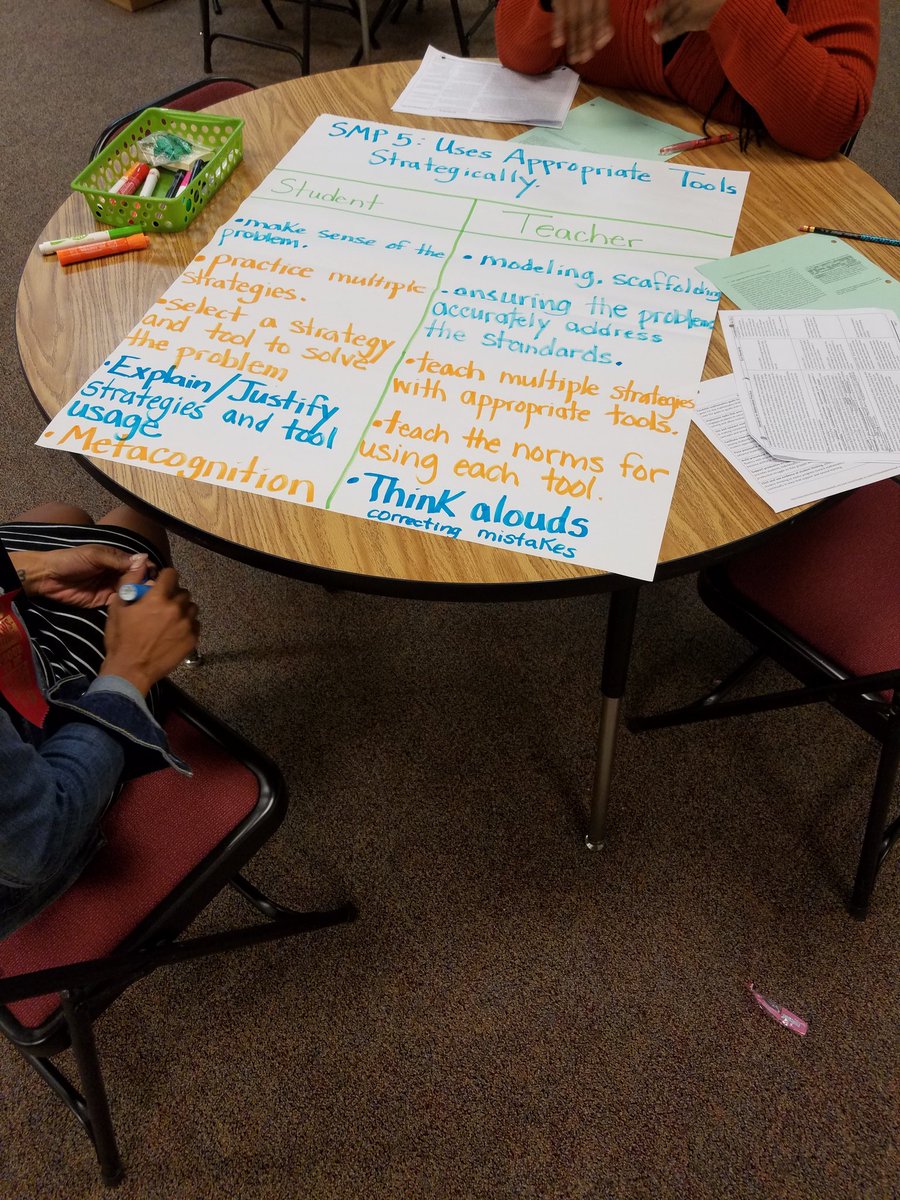 SMP 5: Uses Appropriate Tools
Strategically.
Student
• make sense of the
problem.
• practice multiple
strategies.
• select a strategy
and tool to solve
the problem
• Explain/Justify
strategies and tool
usage
• Metacognition
Teacher
• modeling, scaffolding
• ensuring the problem
accurately address
the standards.
• teach multiple strategies
with appropriate tools.
• teach the norms for
using each tool.
• Think alouds
correcting mistakes